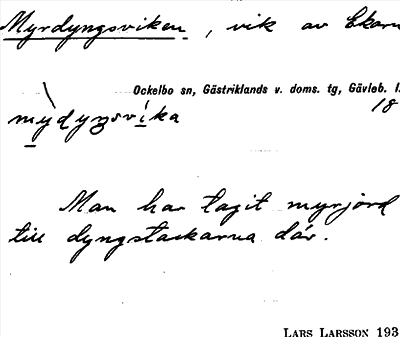 Myrdyngsviken, vik av Ekarn
Ockelbo sn, Gästriklands v. doms. tg, Gävleb. l.
18
mỳdyŋsvíka
Man har tagit myrjord
till dyngstackarna där.
LARS LARSSON 193